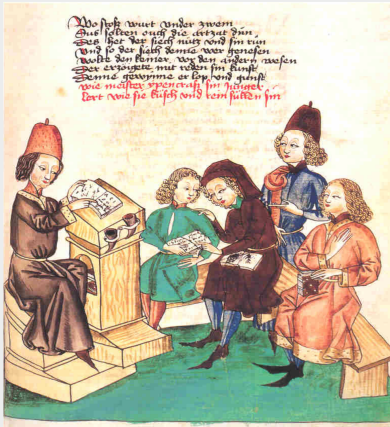 Wo stoß wurt vnder zwein
Das solten ouch die artzat dün
Des het der siech nutz vnd sin rün
Vnd so der siech denne wer genesen
Wolte den keiner, vor den andern wesen
Der erzoigete mit reden sin kunst
Denne gewynne er lop vnd gunst
wie meister ypencras sin junger
lort wie sie küsch vnd rein süllen sin